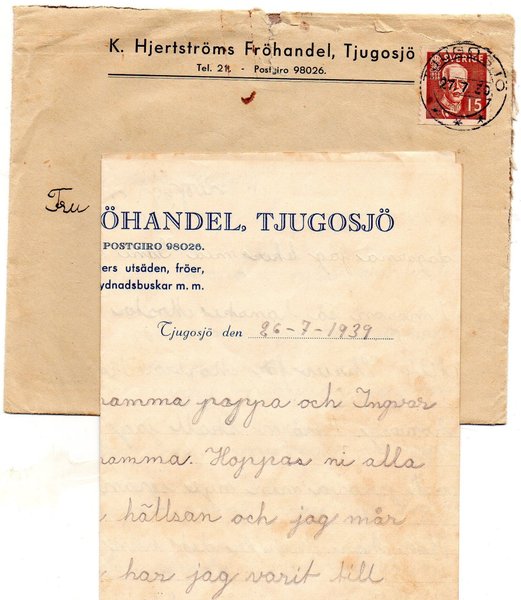 K. Hjertströms Fröhandel, Tjugosjö
Tel. 21. - Postgiro 98026.
SVERIGE
15
TJUGOSJÖ
27.7.39
Fru
ÖHANDEL, TJUGOSJÖ
POSTGIRO 98026.
ers utsäden, fröer,
ydnadsbuskar m. m.
Tjugosjö den 26-7-1939
amma pappa och Ingvar
amma. Hoppas ni alla
hällsan och jag mår
har jag varit till